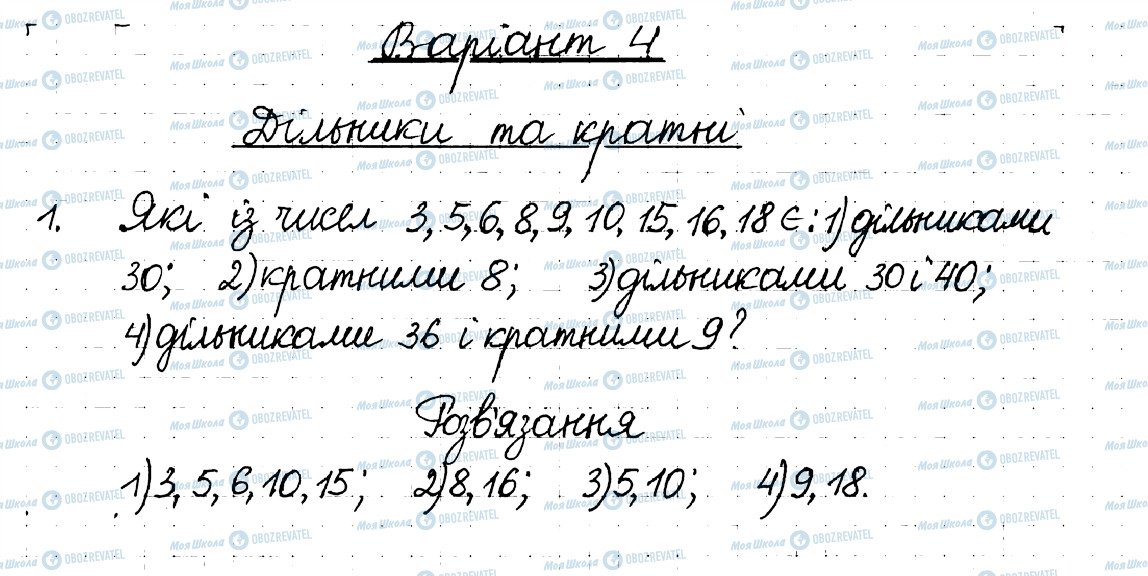 Варіант 4
Дільники та кратні
1. Які із чисел 3, 5, 6, 8, 9, 10, 15, 16, 18 є: 1) дільниками
30; 2) кратними 8; 3) дільниками 30 і 40;
4) дільниками 36 і кратними 9?
Розв'язання
1) 3, 5, 6, 10, 15; 2) 8, 16; 3) 5, 10; 4) 9, 18.